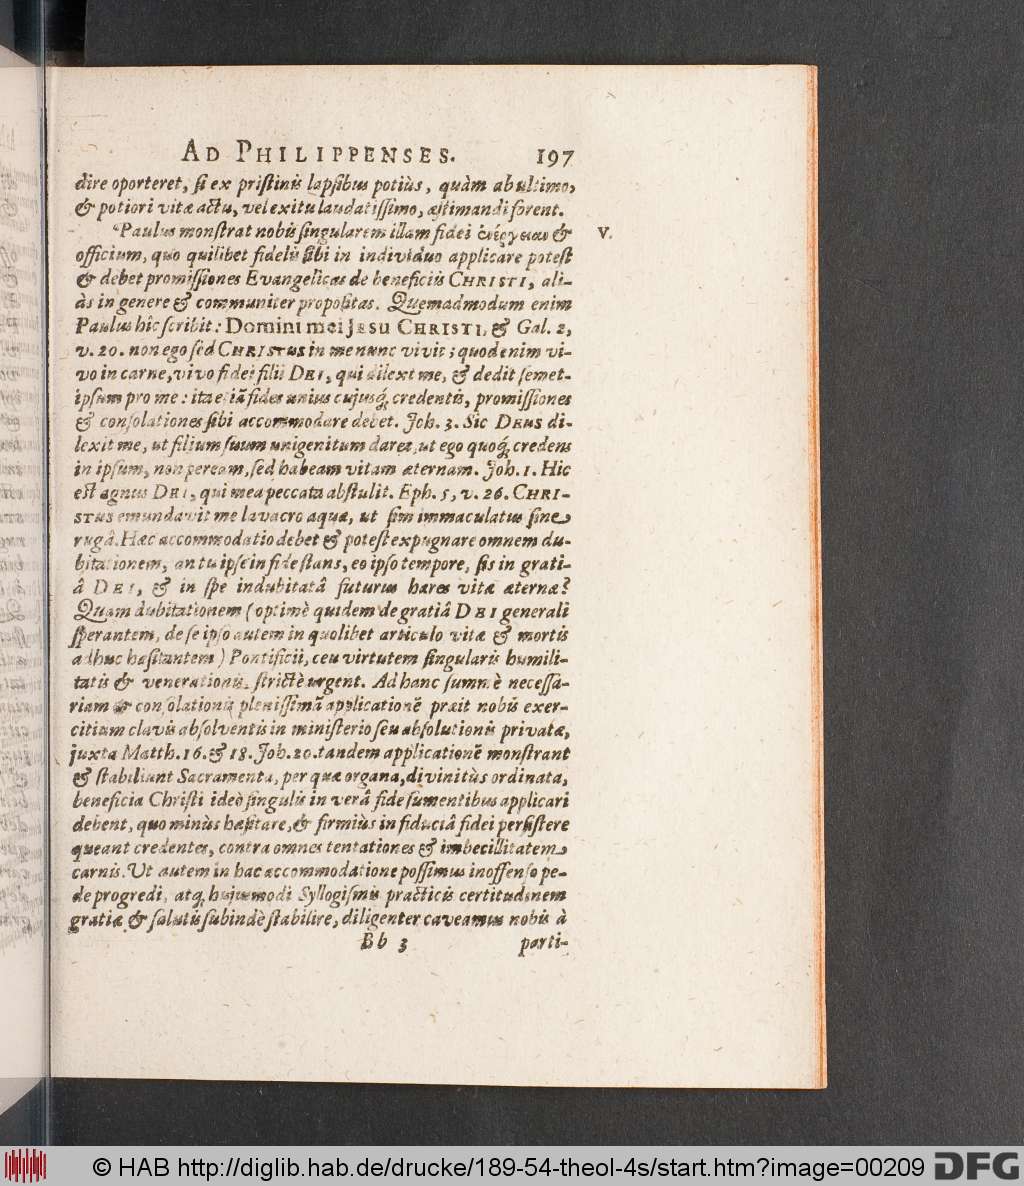 AD PHILIPPENSES. 197
dire oporteret, ſi ex priſtinis lapſibus potiùs, quàm ab ultimo,
& potiori vitæ actu, vel exitu laudatiſſimo, æſtimandi forent.
Paulus monſtrat nobis ſingularem illam fidei ἐνέργειαν & V.
officium, quo quilibet fidelis ſibi in individuo applicare poteſt
& debet promiſſiones Evangelicas de beneficiis CHRISTI, ali-
às in genere & communiter propoſitas. Quemadmodum enim
Paulus hîc ſcribit: Domini mei Jesu CHRISTI, & Gal. 2,
v. 20. non ego ſed CHRISTUS in me nunc vivit; quod enim vi-
vo in carne, vivo fide filii DEI, qui dilexit me, & dedit ſemet-
ipſum pro me: ita etiã fides unius cujusq́; credentis, promiſſiones
& conſolationes ſibi accommodare debet. Joh. 3. Sic DEUS di-
lexit me, ut filium ſuum unigenitum daret, ut ego quoq́; credens
in ipſum, non peream, ſed habeam vitam æternam. Joh. 1. Hic
eſt agnus DEI, qui mea peccata abſtulit. Eph. 5, v. 26. CHRI-
STUS emundavit me lavacro aquæ, ut ſim immaculatus ſine
rugâ. Hæc accommodatio debet & poteſt expugnare omnem du-
bitationem, an tu ipſe in fide ſtans, eo ipſo tempore, ſis in grati-
â DEI, & in ſpe indubitatâ futurus hæres vitæ æternæ?
Quam dubitationem (optimè quidem de gratiâ DEI generali
ſperantem, de ſe ipſo autem in quolibet articulo vitæ & mortis
adhuc hæſitantem) Pontificii, ceu virtutem ſingularis humili-
tatis & venerationis, ſtrictè urgent. Ad hanc ſummè neceſſa-
riam & conſolationis pleniſſimã applicationẽ præit nobis exer-
citium clavis abſolventis in miniſterio ſeu abſolutionis privatæ,
juxta Matth. 16. & 18. Joh. 20. tandem applicationẽ monſtrant
& ſtabiliunt Sacramenta, per quæ organa, divinitùs ordinata,
beneficia Chriſti ideò ſingulis in verâ fide ſumentibus applicari
debent, quo minùs hæſitare, & firmiùs in fiduciâ fidei perſiſtere
queant credentes, contra omnes tentationes & imbecillitatem
carnis. Ut autem in hac accommodatione poſſimus inoffenſo pe-
de progredi, atq; hujusmodi Syllogiſmis practicis certitudinem
gratiæ & ſalutis ſubindè ſtabilire, diligenter caveamus nobis à
Bb 3 parti-
© HAB http://diglib.hab.de/drucke/189-54-theol-4s/start.htm?image=00209 DFG